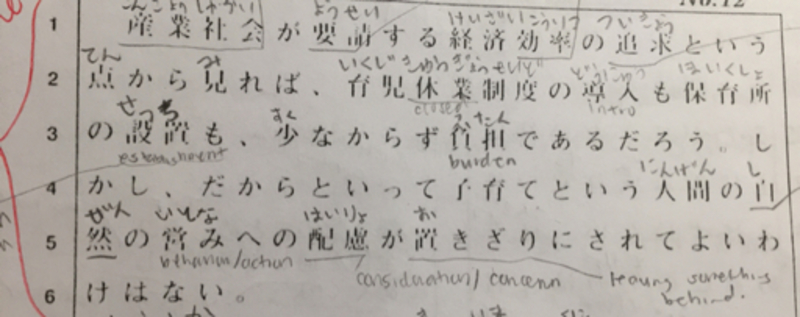 No.12
さんぎょうしゃかい ようせい けいざいこうりつ ついきゅう
1 産業社会が要請する経済効率の追求という
てん み いくじきゅうぎょうせいど どうにゅう ほいくしょ
2 点から見れば、育児休業制度の導入も保育所
closed intro
せっち すく ふたん
3 の設置も、少なからず負担であるだろう。し
establishment burden
にんげん し
4 かし、だからといって子育てという人間の自
ぜん いとな はいりょ お
5 然の営みへの配慮が置きざりにされてよいわ
behavior/action consideration/concern leaving something behind.
6 けはない。